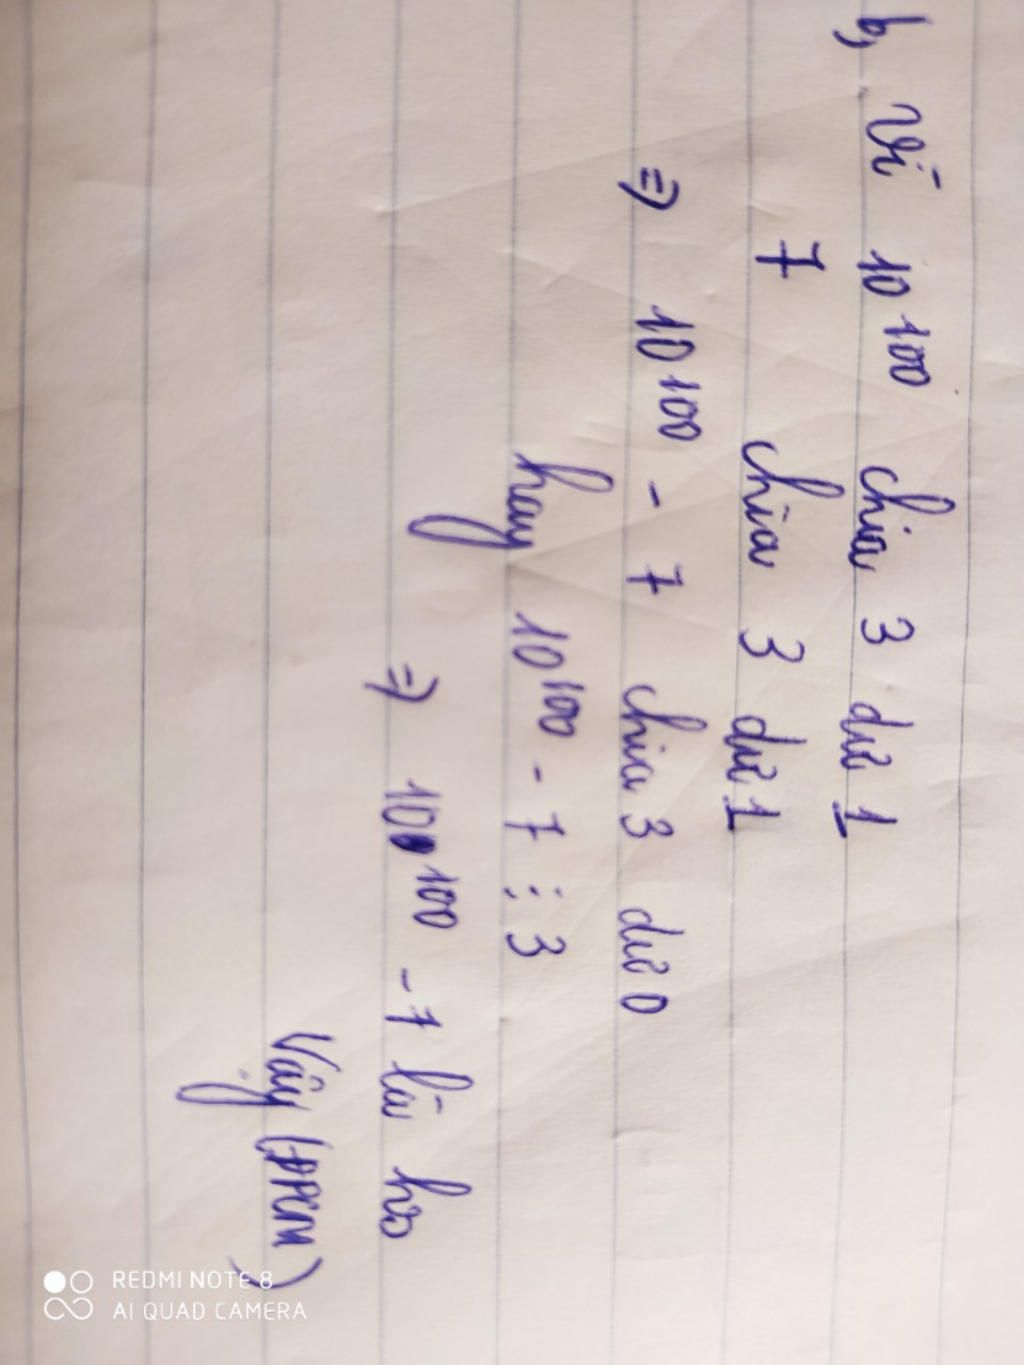 b, Vì 10^100 chia 3 dư 1
7 chia 3 dư 1
=> 10^100 - 7 chia 3 dư 0
hay 10^100 - 7 ⋮ 3
=> 10^100 - 7 là hs
Vậy (ĐPCM)
REDMI NOTE 8
AI QUAD CAMERA